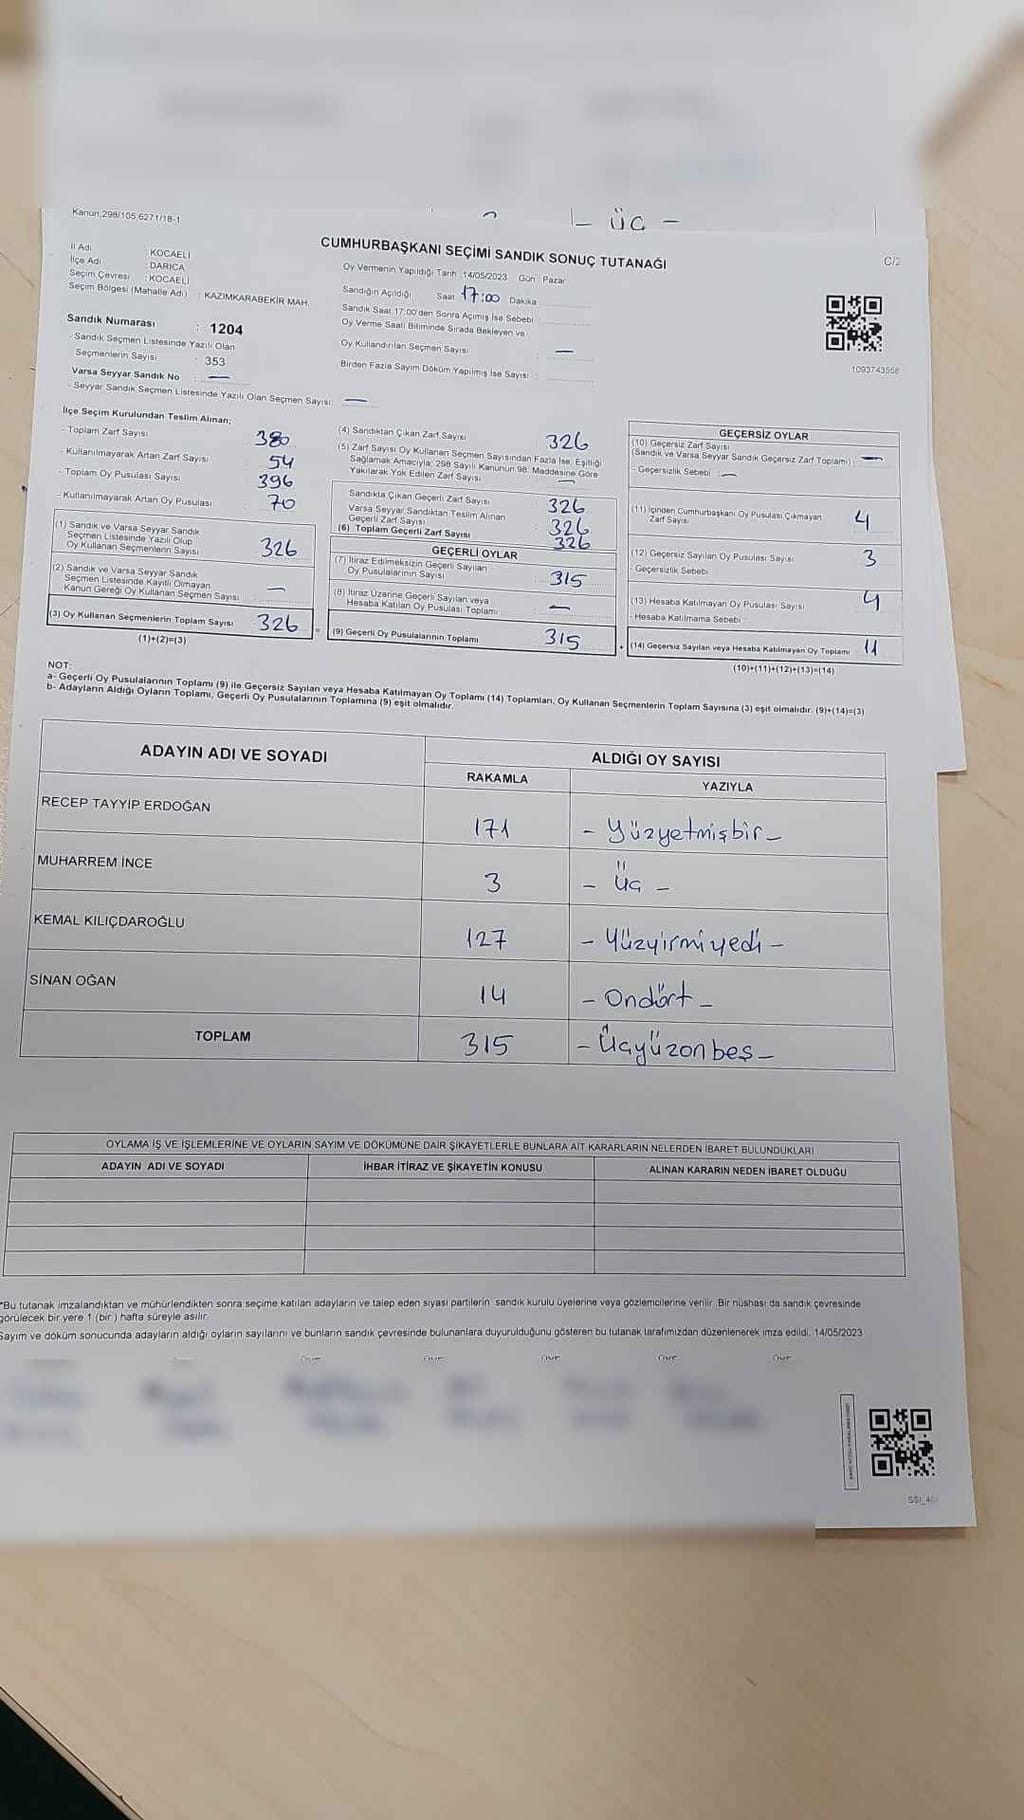 - üç -
Kanun;298/105,6271/18-1
CUMHURBAŞKANI SEÇİMİ SANDIK SONUÇ TUTANAĞI
C/2
İl Adı : KOCAELİ
İlçe Adı : DARICA
Seçim Çevresi : KOCAELİ
Seçim Bölgesi (Mahalle Adı) : KAZIMKARABEKİR MAH.
Sandık Numarası : 1204
- Sandık Seçmen Listesinde Yazılı Olan
Seçmenlerin Sayısı : 353
Varsa Seyyar Sandık No : —
- Seyyar Sandık Seçmen Listesinde Yazılı Olan Seçmen Sayısı: —
Oy Vermenin Yapıldığı Tarih :14/05/2023 Gün : Pazar
Sandığın Açıldığı Saat 17:00 Dakika
Sandık Saat 17:00'den Sonra Açılmış İse Sebebi :
Oy Verme Saati Bitiminde Sırada Bekleyen ve
Oy Kullandırılan Seçmen Sayısı : —
Birden Fazla Sayım Döküm Yapılmış İse Sayısı :
1093743558
İlçe Seçim Kurulundan Teslim Alınan;
- Toplam Zarf Sayısı 380
- Kullanılmayarak Artan Zarf Sayısı 54
- Toplam Oy Pusulası Sayısı 396
- Kullanılmayarak Artan Oy Pusulası 70
(1) Sandık ve Varsa Seyyar Sandık
Seçmen Listesinde Yazılı Olup
Oy Kullanan Seçmenlerin Sayısı 326
(2) Sandık ve Varsa Seyyar Sandık
Seçmen Listesinde Kayıtlı Olmayan
Kanun Gereği Oy Kullanan Seçmen Sayısı —
(3) Oy Kullanan Seçmenlerin Toplam Sayısı 326
(1)+(2)=(3)
(4) Sandıktan Çıkan Zarf Sayısı 326
(5) Zarf Sayısı Oy Kullanan Seçmen Sayısından Fazla İse, Eşitliği
Sağlamak Amacıyla; 298 Sayılı Kanunun 98. Maddesine Göre
Yakılarak Yok Edilen Zarf Sayısı —
Sandıkta Çıkan Geçerli Zarf Sayısı 326
Varsa Seyyar Sandıktan Teslim Alınan
Geçerli Zarf Sayısı 326
(6) Toplam Geçerli Zarf Sayısı 326
GEÇERLİ OYLAR
(7) İtiraz Edilmeksizin Geçerli Sayılan
Oy Pusulalarının Sayısı 315
(8) İtiraz Üzerine Geçerli Sayılan veya
Hesaba Katılan Oy Pusulası Toplamı —
(9) Geçerli Oy Pusulalarının Toplamı 315
GEÇERSİZ OYLAR
(10) Geçersiz Zarf Sayısı
(Sandık ve Varsa Seyyar Sandık Geçersiz Zarf Toplamı) —
- Geçersizlik Sebebi : —
(11) İçinden Cumhurbaşkanı Oy Pusulası Çıkmayan
Zarf Sayısı 4
(12) Geçersiz Sayılan Oy Pusulası Sayısı 3
- Geçersizlik Sebebi :
(13) Hesaba Katılmayan Oy Pusulası Sayısı 4
- Hesaba Katılmama Sebebi :
(14) Geçersiz Sayılan veya Hesaba Katılmayan Oy Toplamı 11
(10)+(11)+(12)+(13)=(14)
NOT:
a- Geçerli Oy Pusulalarının Toplamı (9) ile Geçersiz Sayılan veya Hesaba Katılmayan Oy Toplamı (14) Toplamları, Oy Kullanan Seçmenlerin Toplam Sayısına (3) eşit olmalıdır. (9)+(14)=(3)
b- Adayların Aldığı Oyların Toplamı, Geçerli Oy Pusulalarının Toplamına (9) eşit olmalıdır.
ADAYIN ADI VE SOYADI ALDIĞI OY SAYISI
RAKAMLA YAZIYLA
RECEP TAYYİP ERDOĞAN 171 - Yüzyetmişbir -
MUHARREM İNCE 3 - Üç -
KEMAL KILIÇDAROĞLU 127 - Yüzyirmiyedi -
SİNAN OĞAN 14 - Ondört -
TOPLAM 315 - Üçyüzonbeş -
OYLAMA İŞ VE İŞLEMLERİNE VE OYLARIN SAYIM VE DÖKÜMÜNE DAİR ŞİKAYETLERLE BUNLARA AİT KARARLARIN NELERDEN İBARET BULUNDUKLARI
ADAYIN ADI VE SOYADI İHBAR İTİRAZ VE ŞİKAYETİN KONUSU ALINAN KARARIN NEDEN İBARET OLDUĞU
*Bu tutanak imzalandıktan ve mühürlendikten sonra seçime katılan adayların ve talep eden siyasi partilerin sandık kurulu üyelerine veya gözlemcilerine verilir. Bir nüshası da sandık çevresinde
görülecek bir yere 1 (bir) hafta süreyle asılır.
Sayım ve döküm sonucunda adayların aldığı oyların sayılarını ve bunların sandık çevresinde bulunanlara duyurulduğunu gösteren bu tutanak tarafımızdan düzenlenerek imza edildi. 14/05/2023